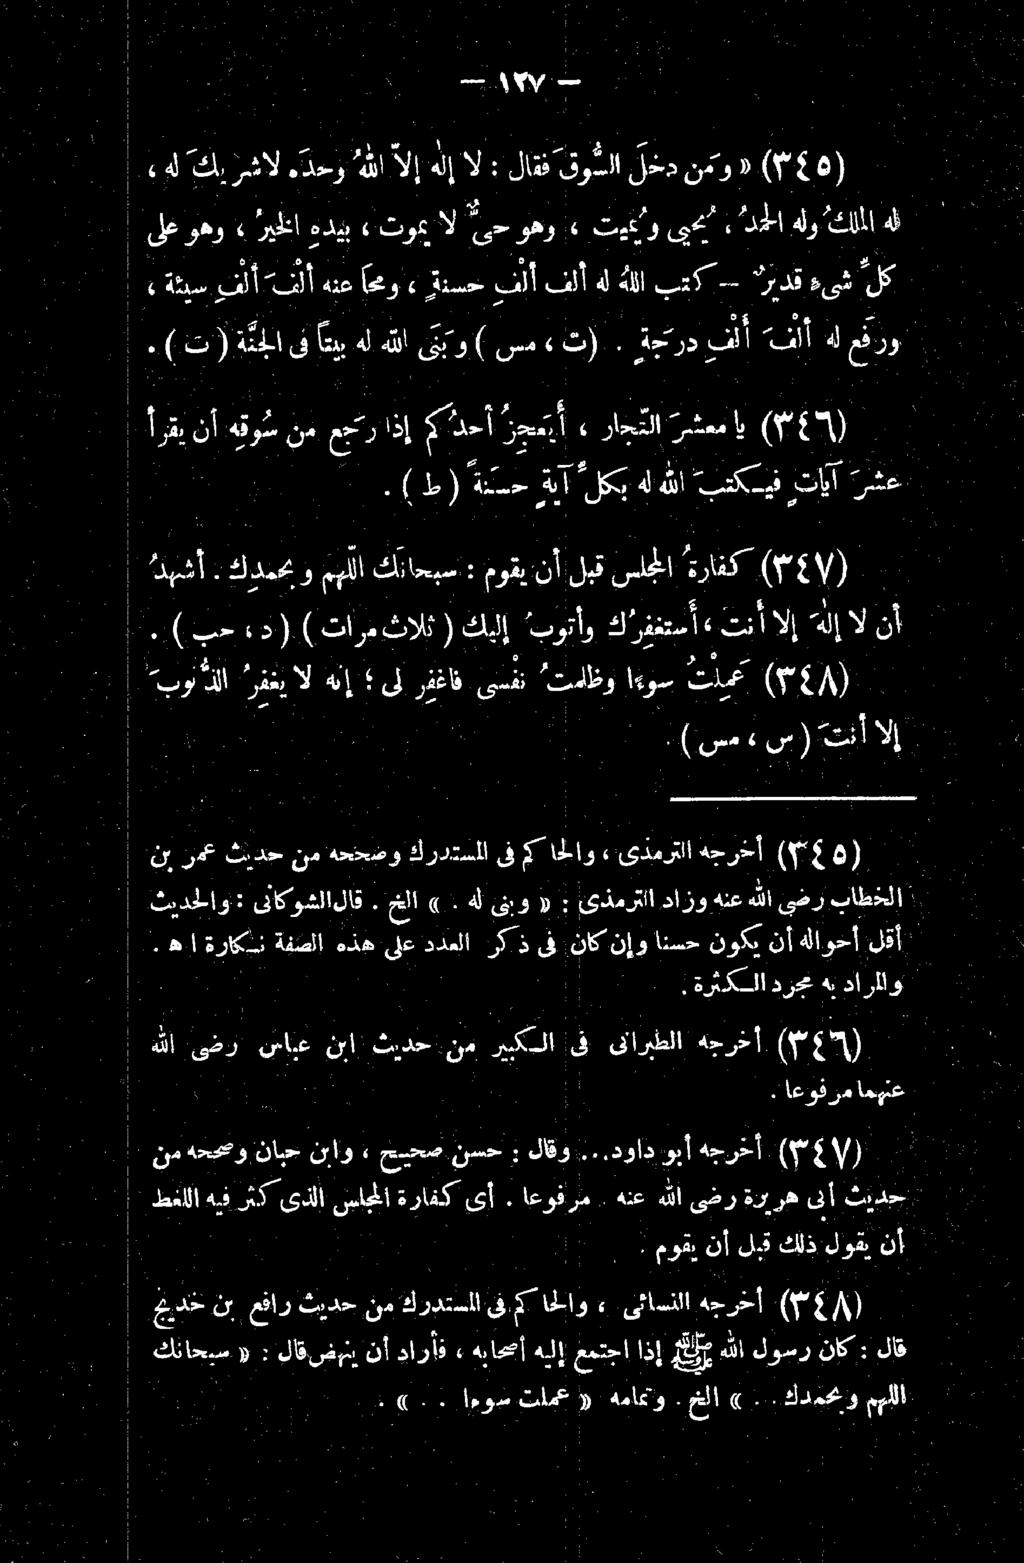 — ١٢٧ —
(٣٤٥) « ومَن دخلَ السُّوقَ فقال : لا إله إلاّ اللهُ وحدَه لا شريكَ له ،
له الملكُ وله الحمدُ ، يُحيي ويُميت ، وهو حىٌّ لا يموت ، بيدهِ الخيرُ ، وهو على
كلِّ شىءٍ قديرٌ — كتب اللهُ له ألف ألْفِ حسنةٍ ، ومحا عنه ألْفَ ألْفِ سيئة ،
ورفَع له ألْفَ ألْفِ درَجةٍ . (ت ، مس ) وبَنَى الله له بيتاً فى الجنَّة ( ت ) .
(٣٤٦) يا معشرَ التجار ، أَيَعجِزُ أحدُكم إذا رجَع من سُوقِهِ أن يقرأ
عشرَ آياتٍ فيكتبَ الله له بكلِّ آيةٍ حسَنةً ( ط ) .
(٣٤٧) كفارةُ المجلس قبل أن يقوم : سبحانَك اللّهم وبحمدِك . أشهدُ
أن لا إلهَ إلا أنت ، أَستغفِرُك وأتوبُ إليك ( ثلاث مرات ) ( د ، حب ) .
(٣٤٨) عَمِلْتُ سوءًا وظلمتُ نفْسى فاغفِر لى ؛ إنه لا يغفِرُ الذُّنوبَ
إلا أنتَ ( س ، مس ) .
(٣٤٥) أخرجه الترمذى ، والحاكم فى المستدرك وضححه من حديث عمر بن
الخطاب رضى الله عنه وزاد الترمذى : « وبنى له . » الخ . قال الشوكانى : والحديث
أقل أحواله أن يكون حسنا وإن كان فى ذكر العدد على هذه الصفة نـكارة ا ه .
والمراد به مجرد الـكثرة .
(٣٤٦) أخرجه الطبرانى فى الـكبير من حديث ابن عباس رضى الله
عنهما مرفوعا .
(٣٤٧) أخرجه أبو داود... وقال : حسن صحيح ، وابن حبان وصححه من
حديث أبى هريرة رضى الله عنه . مرفوعا . أى كفارة المجلس الذى كثر فيه اللغط
أن يقول ذلك قبل أن يقوم .
(٣٤٨) أخرجه النسائى ، والحاكم فى المستدرك من حديث رافع بن خديج
قال : كان رسول الله ﷺ إذا اجتمع إليه أصحابه ، فأراد أن ينهض قال : « سبحانك
اللهم وبحمدك . . » الخ . وتمامه « عملت سوءا . . » .